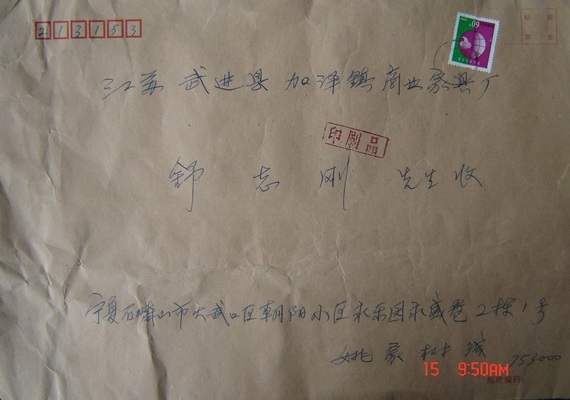 213153
江苏 武进县 加泽镇 商业家具厂
印刷品
舒志刚 先生收
宁夏石嘴山市大武口区朝阳小区永乐园永盛巷2栋1号
姚家树 753000
15 9:50AM